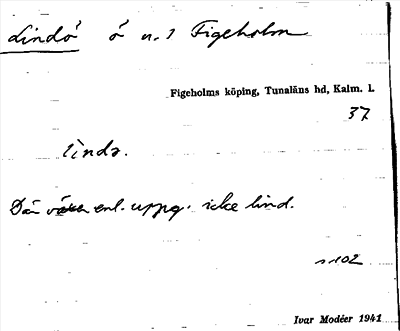 Lindö ö n. 1 Figeholm
Figeholms köping, Tunaläns hd, Kalm. l.
37
lìndə.
Där växer enl. uppg. icke lind.
s 102
Ivar Modéer 1941